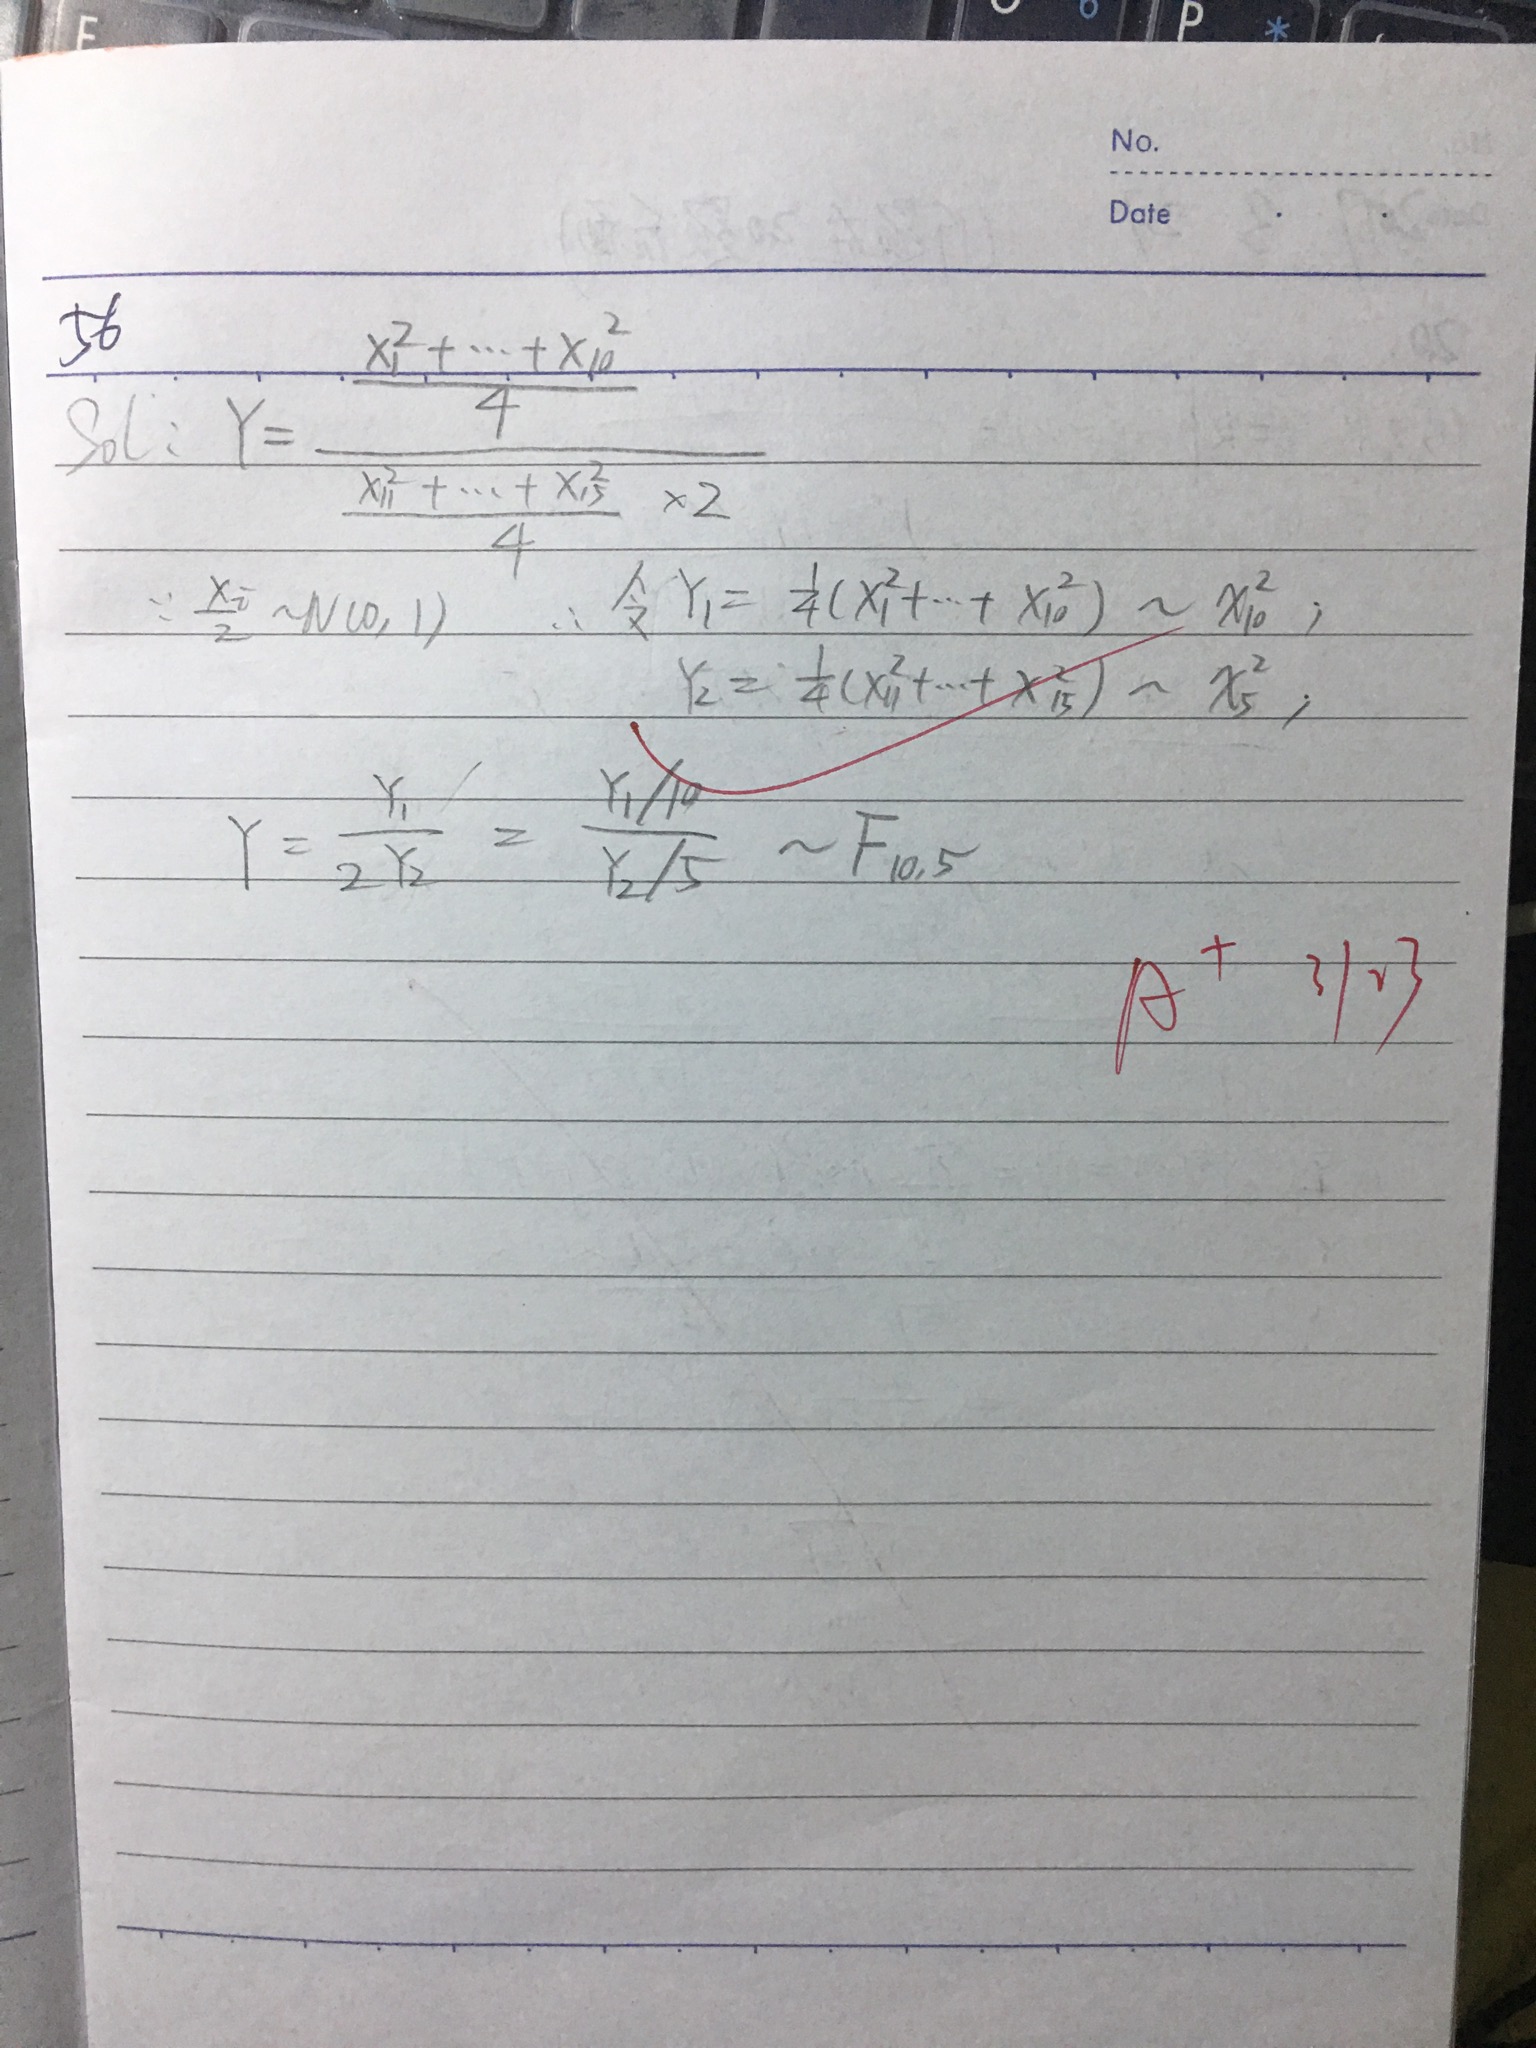 No.
Date
56
Sol: Y = \frac{\frac{X_1^2+\cdots+X_{10}^2}{4}}{\frac{X_{11}^2+\cdots+X_{15}^2}{4} \times 2}
∵ \frac{X_i}{2} ~ N(0, 1) ∴ 令 Y_1 = \frac{1}{4}(X_1^2+\cdots+X_{10}^2) ~ χ_{10}^2;
Y_2 = \frac{1}{4}(X_{11}^2+\cdots+X_{15}^2) ~ χ_5^2,
Y = \frac{Y_1}{2Y_2} = \frac{Y_1/10}{Y_2/5} ~ F_{10,5}
A+ 3/23